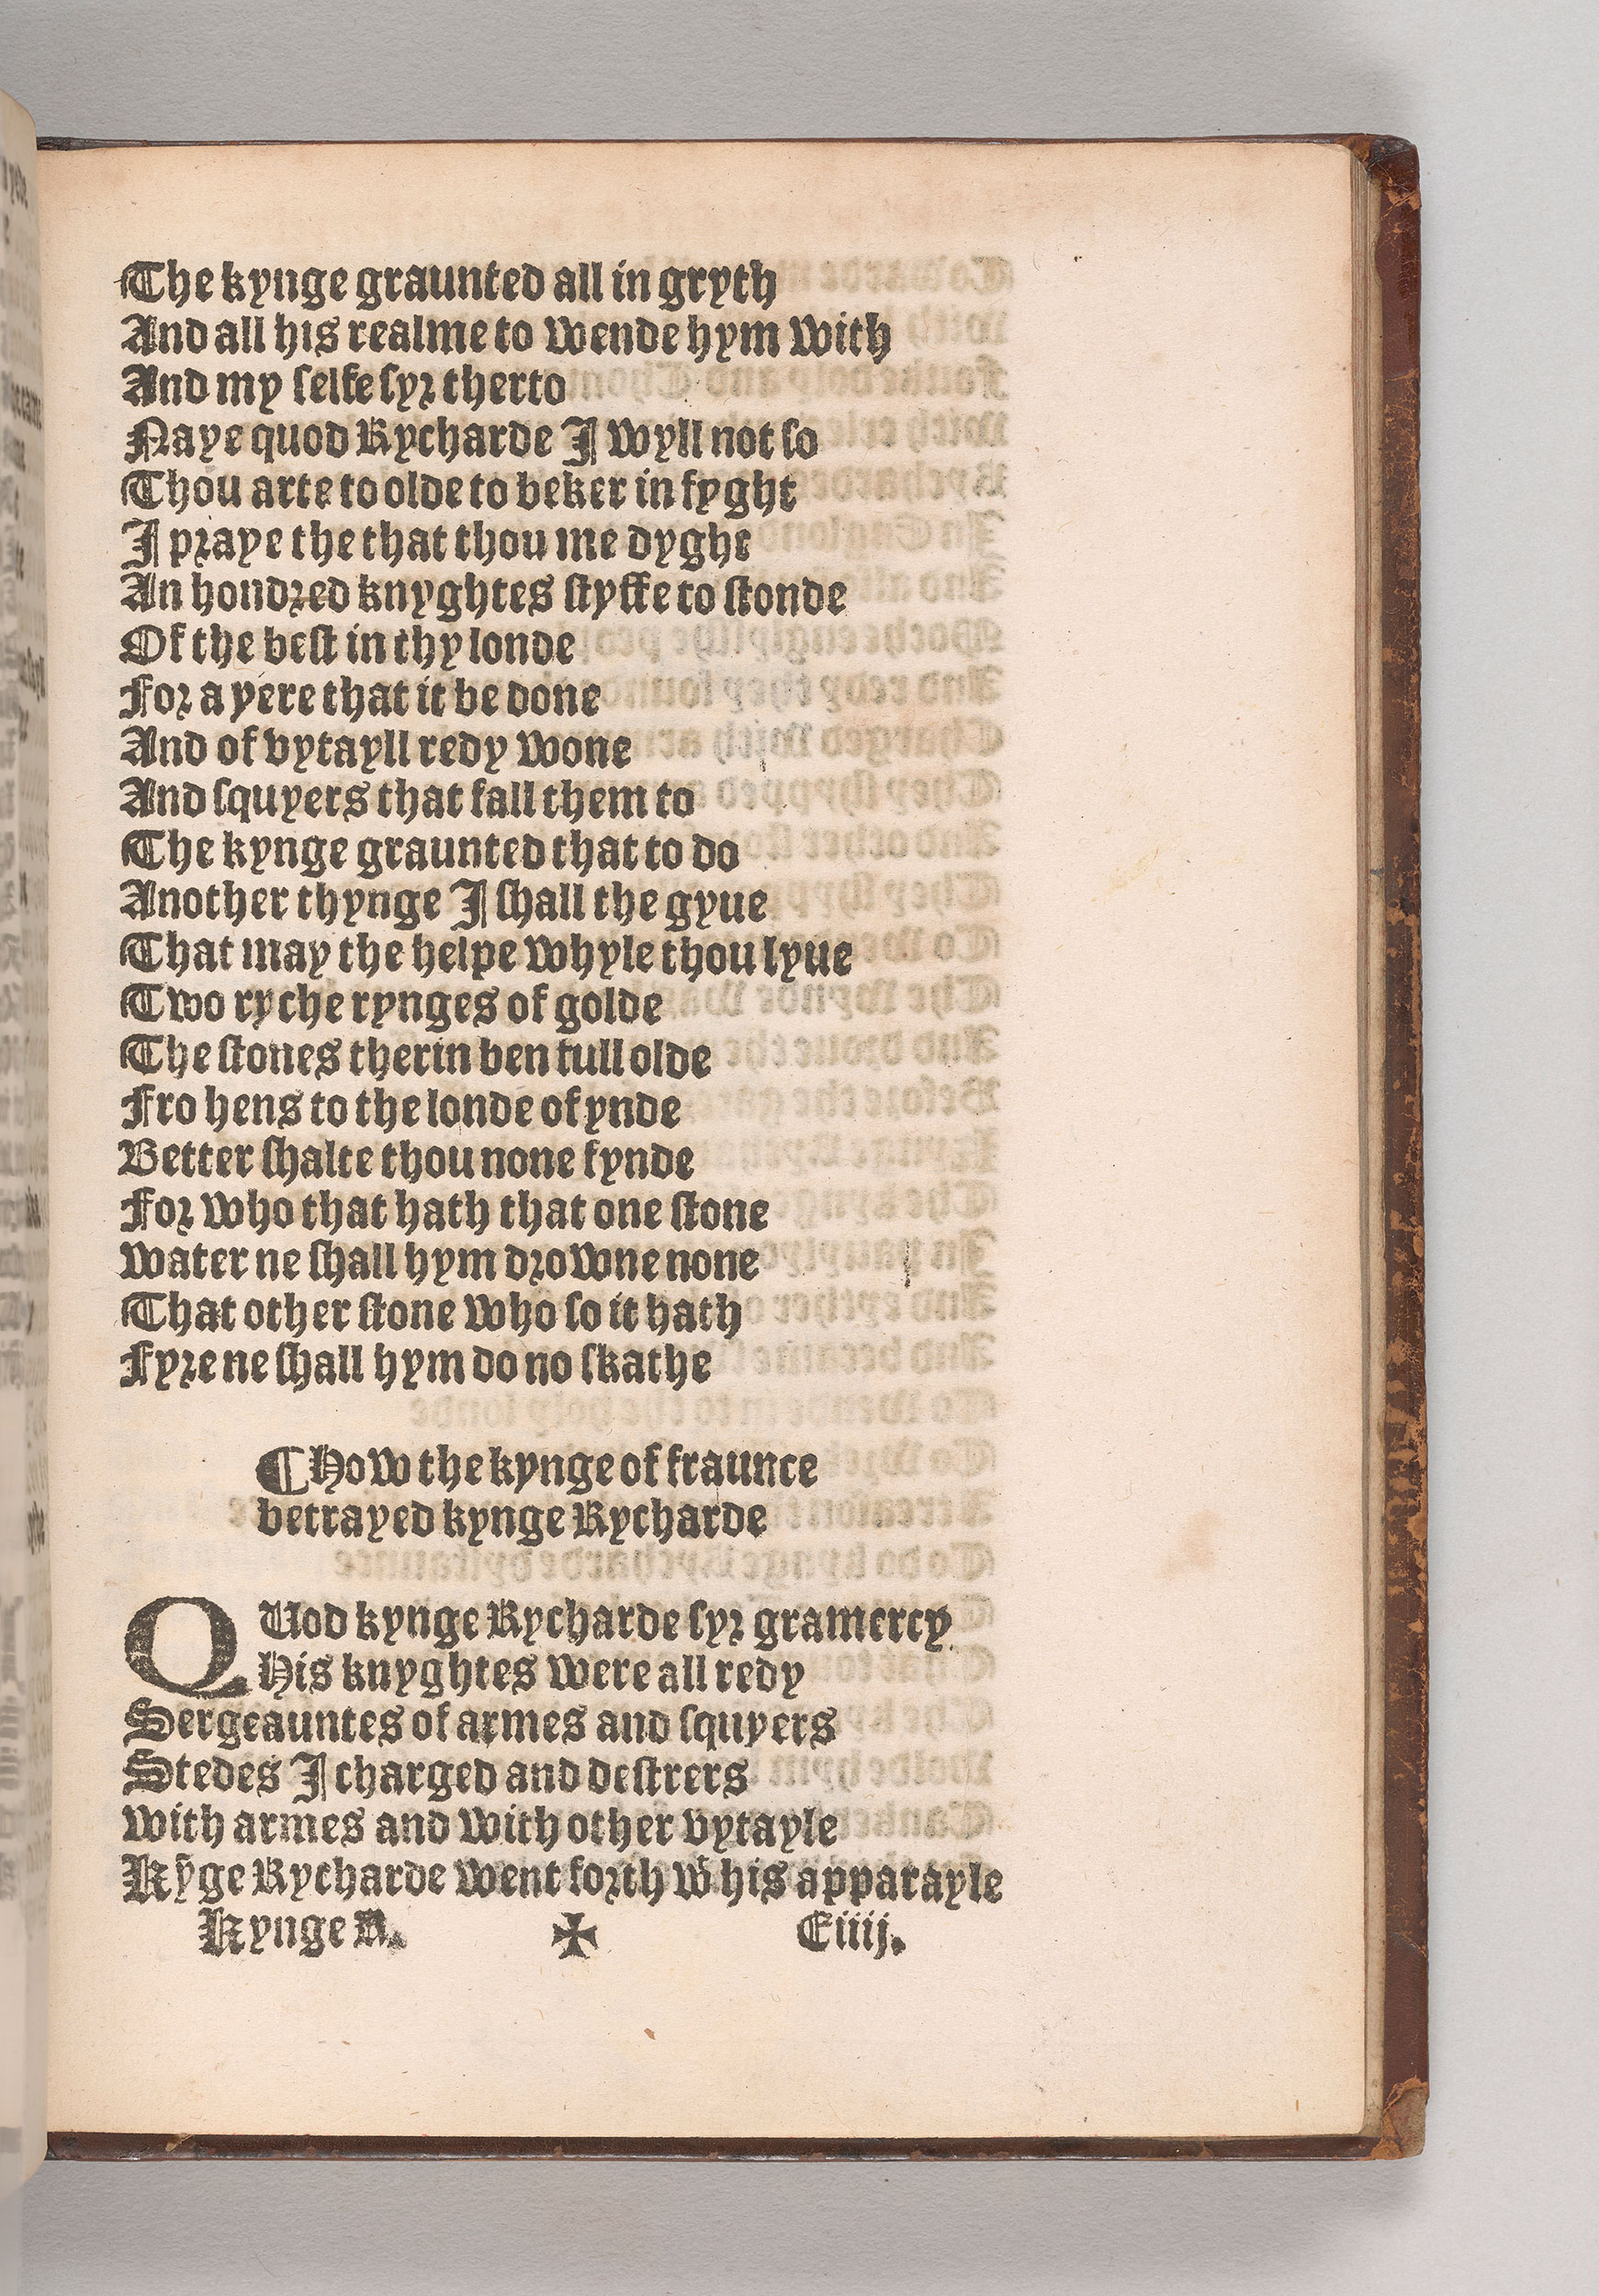 The kynge graunted all in gryth
And all his realme to wende hym with
And my selfe syr therto
Naye quod Rycharde I wyll not so
Thou arte to olde to beker in fyght
I praye the that thou me dyght
An hondred knyghtes styffe to stonde
Of the best in thy londe
For a yere that it be done
And of vytayll redy wone
And squyers that fall them to
The kynge graunted that to do
Another thynge I shall the gyue
That may the helpe whyle thou lyue
Two ryche rynges of golde
The stones therin ben full olde
Fro hens to the londe of ynde
Better shalte thou none fynde
For who that hath that one stone
Water ne shall hym drowne none
That other stone who so it hath
Fyre ne shall hym do no skathe
¶How the kynge of fraunce
betrayed kynge Rycharde
QUod kynge Rycharde syr gramercy
His knyghtes were all redy
Sergeauntes of armes and squyers
Stedes I charged and destrers
With armes and with other vytayle
Kỹge Rycharde went forth wͭ his apparayle
Kynge R. ✠ Eiiij.